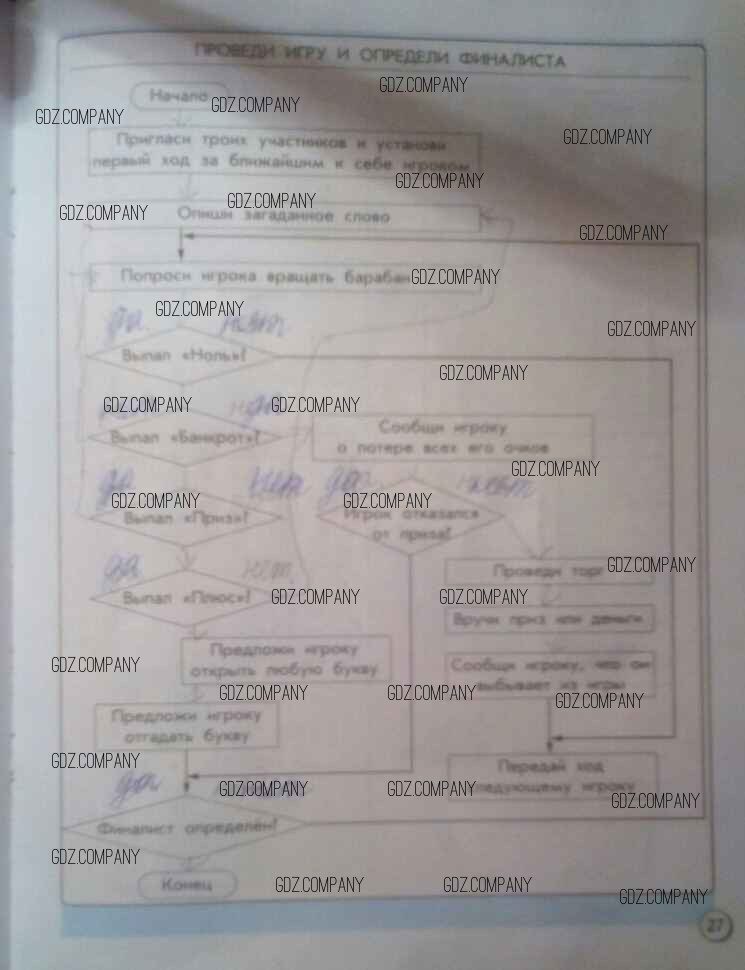 ПРОВЕДИ ИГРУ И ОПРЕДЕЛИ ФИНАЛИСТА
GDZ.COMPANY
Начало
GDZ.COMPANY
GDZ.COMPANY
GDZ.COMPANY
Пригласи троих участников и установи
первый ход за ближайшим к себе игроком
GDZ.COMPANY
GDZ.COMPANY
GDZ.COMPANY
Опиши загаданное слово
GDZ.COMPANY
Попроси игрока вращать барабан
GDZ.COMPANY
GDZ.COMPANY
да нет
GDZ.COMPANY
Выпал «Ноль»?
GDZ.COMPANY
GDZ.COMPANY
GDZ.COMPANY
Выпал «Банкрот»?
Сообщи игроку
о потере всех его очков
GDZ.COMPANY
да нет
да нет
GDZ.COMPANY
GDZ.COMPANY
Выпал «Приз»?
Игрок отказался
от приза?
да нет
Проведи торг
GDZ.COMPANY
Выпал «Плюс»?
GDZ.COMPANY
GDZ.COMPANY
Вручи приз или деньги
Предложи игроку
открыть любую букву
GDZ.COMPANY
Сообщи игроку, что он
выбывает из игры
GDZ.COMPANY
GDZ.COMPANY
GDZ.COMPANY
Предложи игроку
отгадать букву
GDZ.COMPANY
Передай ход
следующему игроку
да
GDZ.COMPANY
GDZ.COMPANY
GDZ.COMPANY
Финалист определён?
GDZ.COMPANY
Конец
GDZ.COMPANY
GDZ.COMPANY
GDZ.COMPANY
27